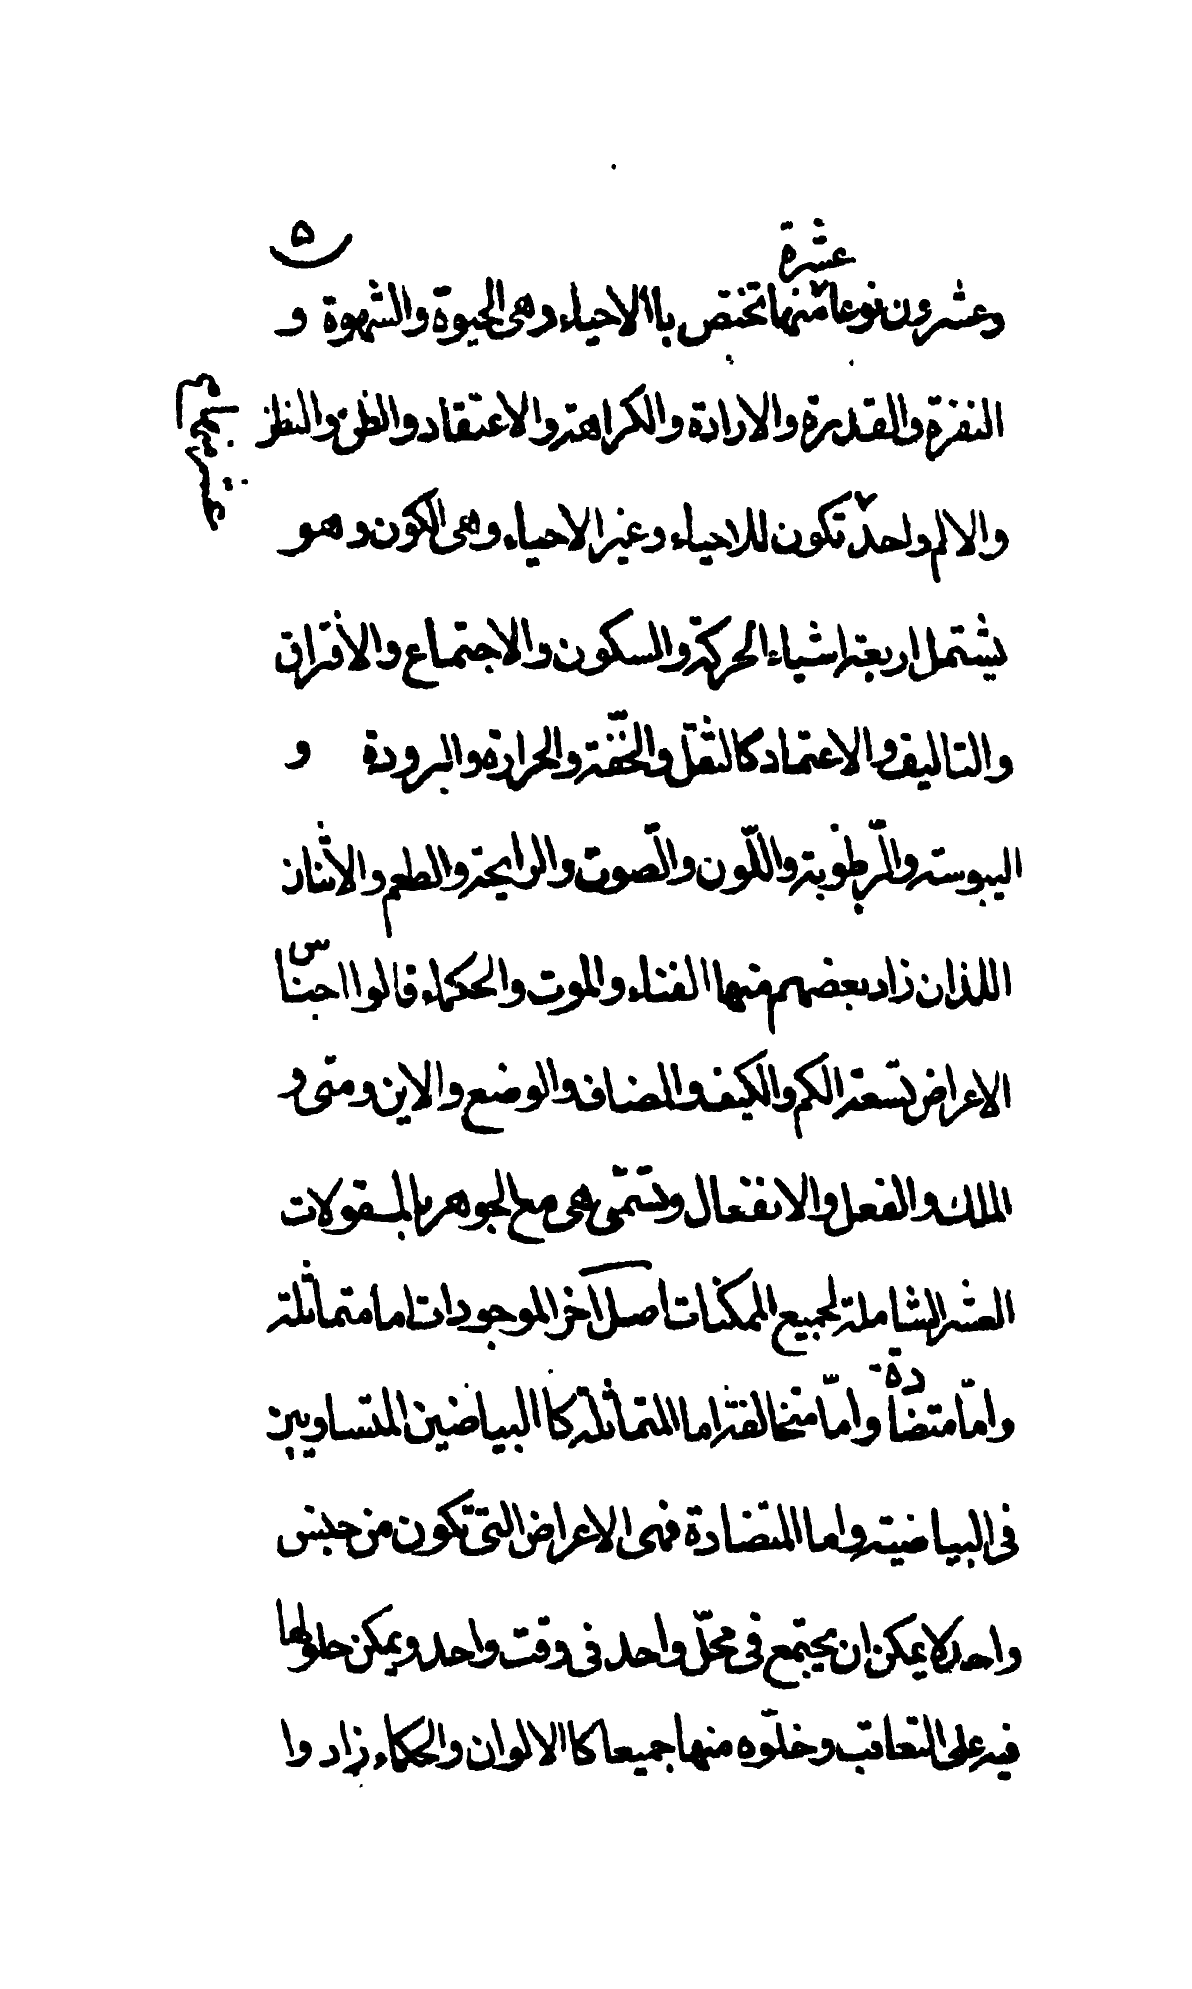 ۵
عشرة
وعشرون نوعا منها تختص باالاحياء وهى الحيوة والشهوة و
النفرة والقدرة والارادة والكراهة والاعتقاد والظن والنظر
والالم واحد تكون للاحياء وغير الاحياء وهى الكون وهو
يشتمل اربعة اشياء الحركة والسكون والاجتماع والافتراق
والتاليف والاعتماد كالثقل والخفّة والحرارة والبرودة و
اليبوسة والرّطوبة واللّون والصّوت والرايحة والطعم والاثنان
اللذان زاد بعضهم منها الفناء والموت والحكماء قالوا اجناس
الاعراض تسعة الكم والكيف والمضاف والوضع والاين ومتى و
الملك والفعل والانفعال وتسمّى هى مع الجوهر بالمقولات
العشر الشاملة لجميع الممكنات اصل اخر الموجودات اما متماثلة
وامّا متضادة وامّا متخالفة اما المتماثلة كا البياضين المتساويين
فى البياضية واما المتضادة فهى الاعراض التى تكون من جنس
واحد ولا يمكن ان يجتمع فى محلّ واحد فى وقت واحد ويمكن حلولها
فيه على التعاقب وخلوّه منها جميعا كا الالوان والحكماء زادوا